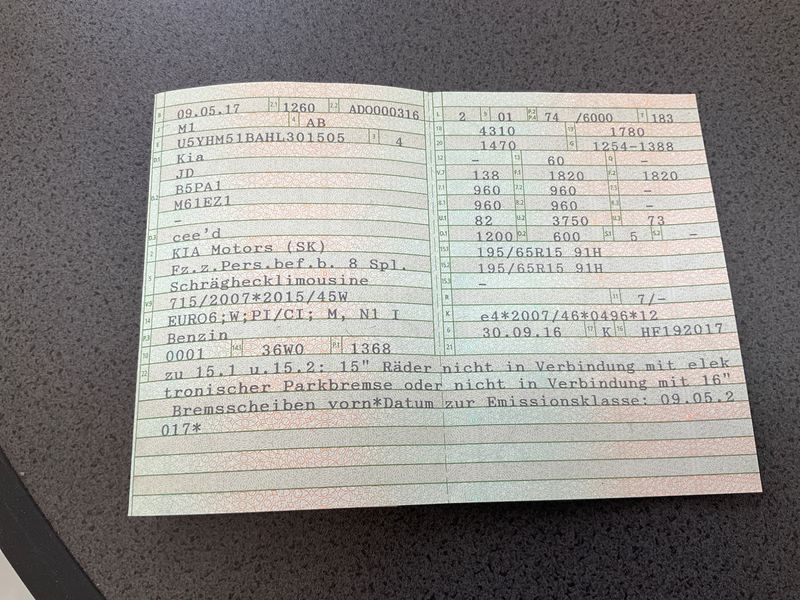 B 09.05.17 2.1 1260 2.2 ADO000316
J M1 4 AB
E U5YHM51BAHL301505 3 4
D.1 Kia
JD
D.2 B5PA1
M61EZ1
–
D.3 cee'd
2 KIA Motors (SK)
5 Fz.z.Pers.bef.b. 8 Spl.
Schräghecklimousine
V.9 715/2007*2015/45W
14 EURO6;W;PI/CI; M, N1 I
P.3 Benzin
10 0001 14.1 36W0 P.1 1368
L 2 9 01 P.2 P.4 74 /6000 T 183
18 4310 19 1780
20 1470 G 1254-1388
12 – 13 60 Q –
V.7 138 F.1 1820 F.2 1820
7.1 960 7.2 960 7.3 –
8.1 960 8.2 960 8.3 –
U.1 82 U.2 3750 U.3 73
O.1 1200 O.2 600 S.1 5 S.2 –
15.1 195/65R15 91H
15.2 195/65R15 91H
15.3 –
R 11 7/–
K e4*2007/46*0496*12
6 30.09.16 17 K 16 HF192017
21
22 zu 15.1 u.15.2: 15" Räder nicht in Verbindung mit elek
tronischer Parkbremse oder nicht in Verbindung mit 16"
Bremsscheiben vorn*Datum zur Emissionsklasse: 09.05.2
017*